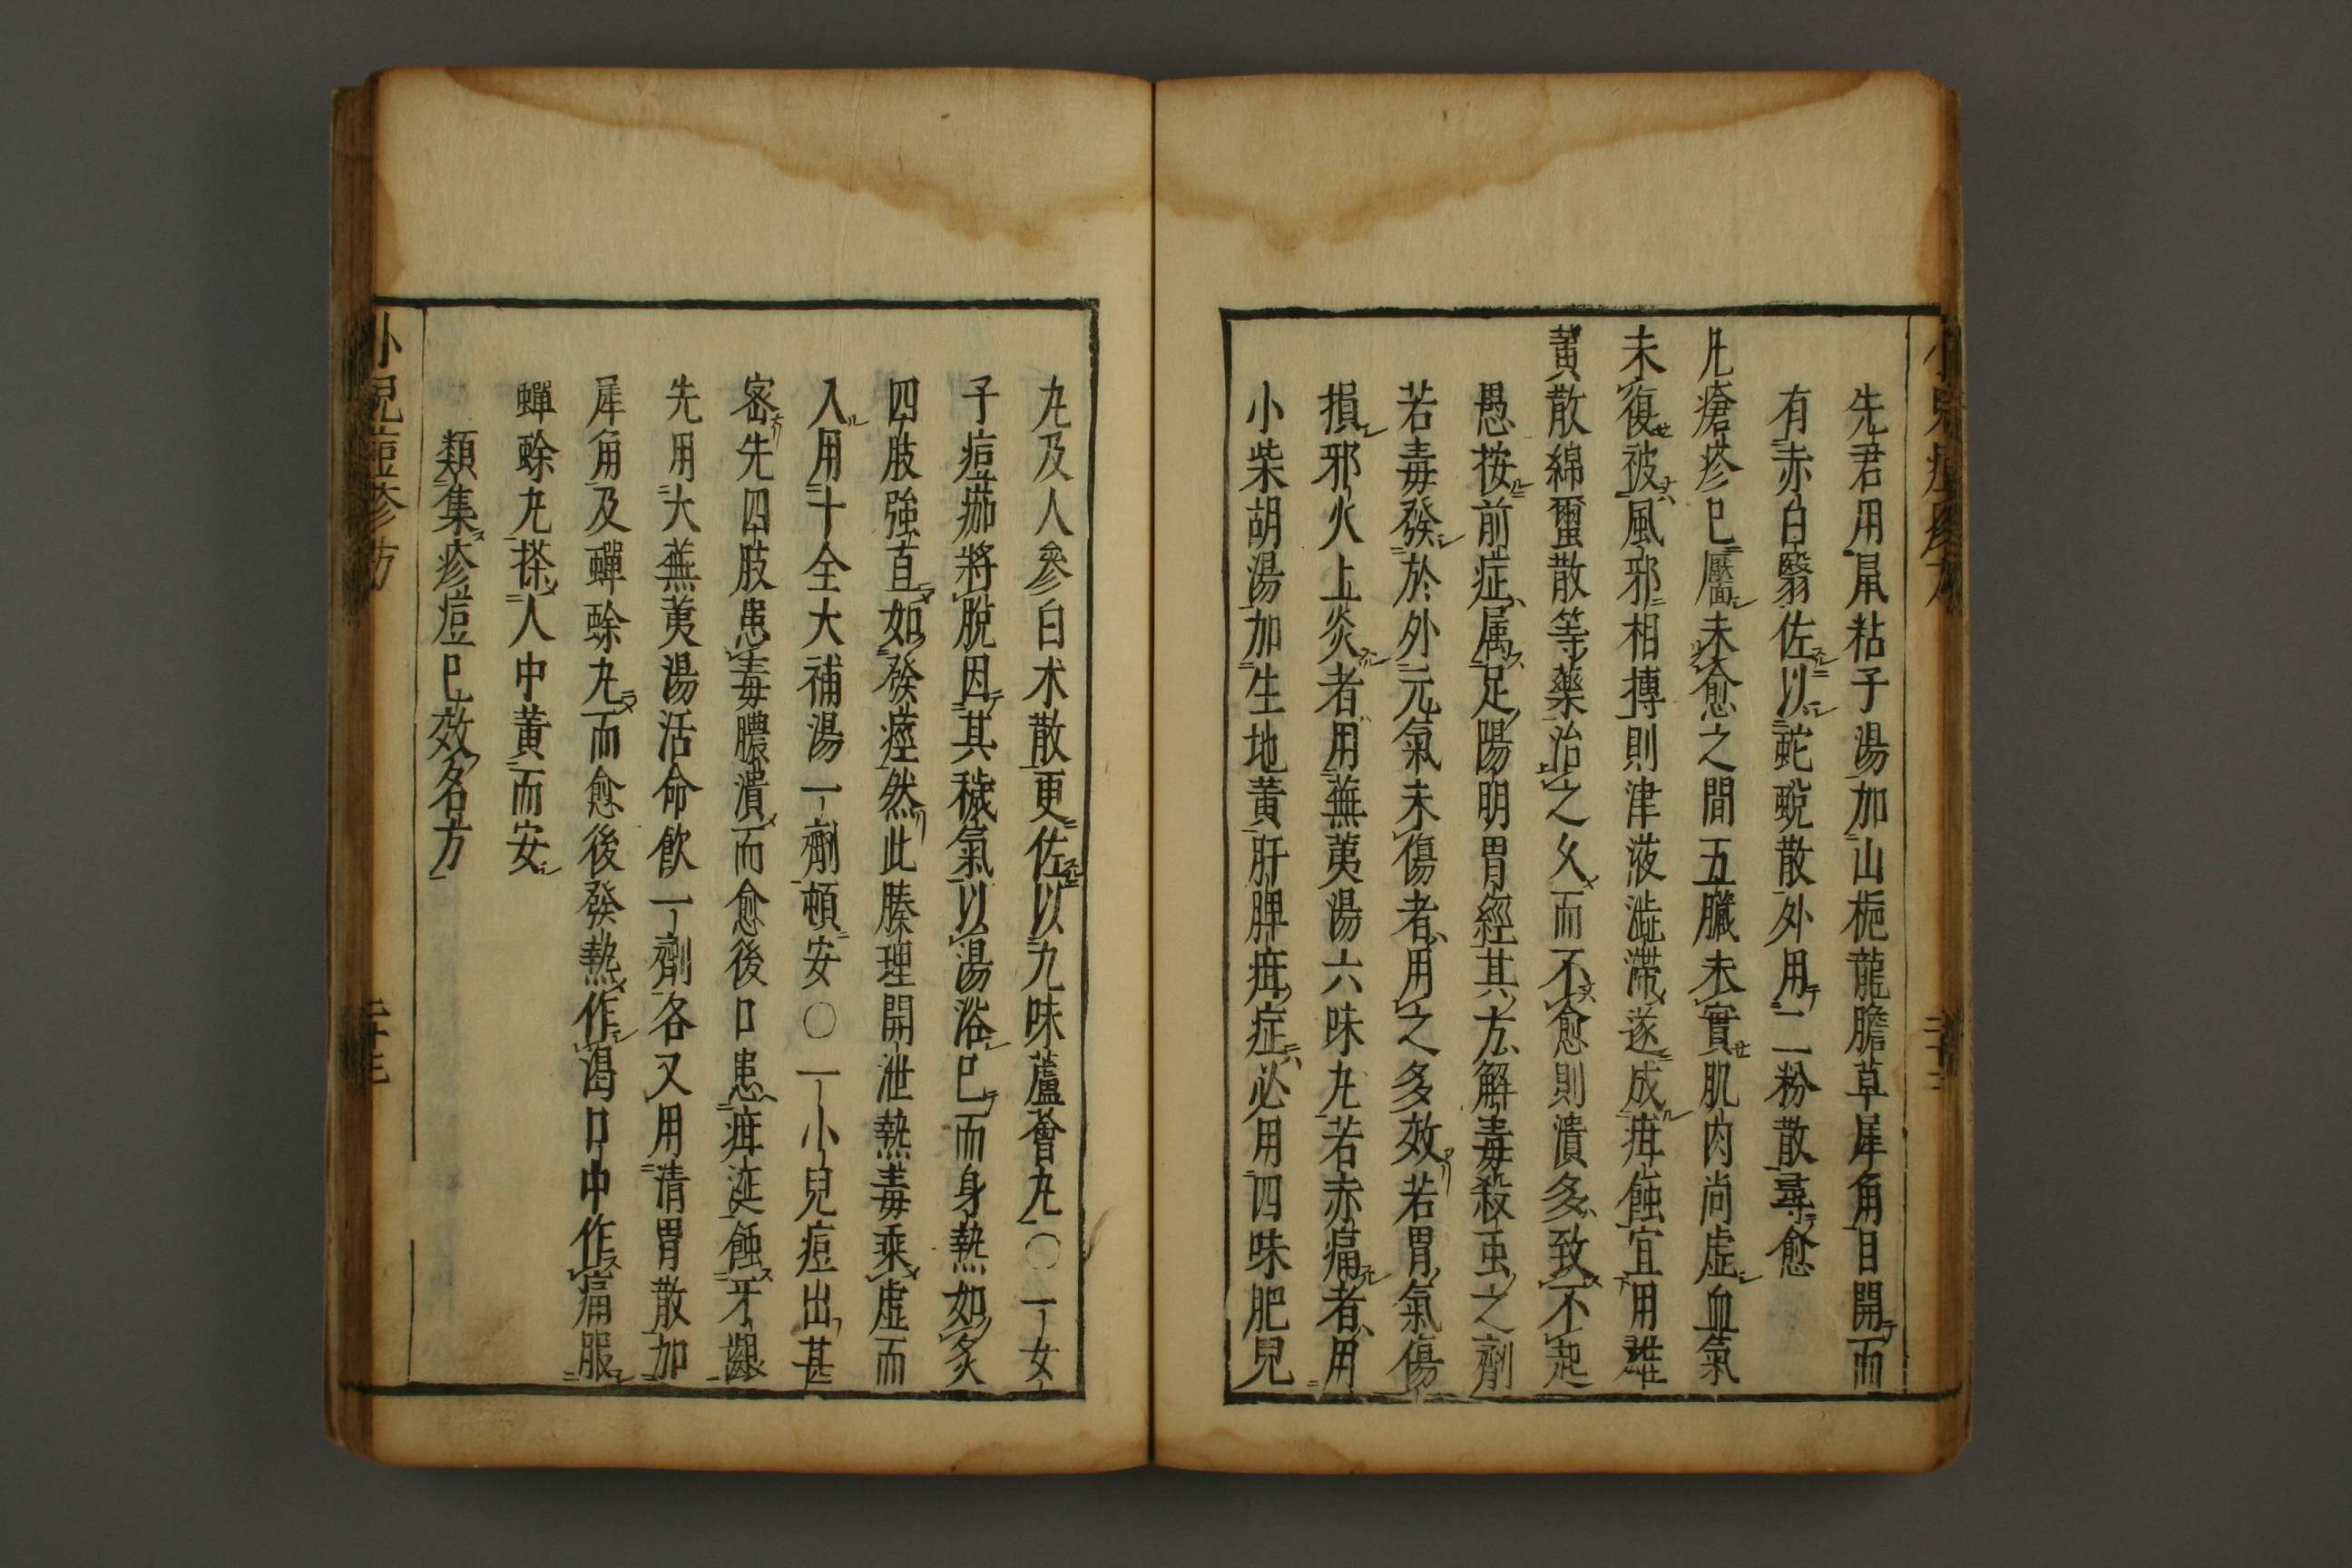 先君用鼠粘子湯加山梔龍膽草犀角目開而
有赤白翳佐以蛇蛻散外用二粉散尋愈
凡瘡疹已靨未愈之間五臟未實肌肉尚虛血氣
未復被風邪相搏則津液澁滯遂成疳蝕宜用雄
黃散綿蠒散等藥治之久而不愈則潰多致不起
愚按前症属足陽明胃經其方解毒殺虫之劑
若毒發於外元氣未傷者用之多效若胃氣傷
損邪火上炎者用蕪荑湯六味丸若赤痛者用
小柴胡湯加生地黃肝脾疳症必用四味肥兒
丸及人參白术散更佐以九味蘆薈丸〇一女
子痘痂將脫因其穢氣以湯浴已而身熱如炙
四肢強直如發痙然此腠理開泄熱毒乘虛而
入用十全大補湯一劑頓安〇一小兒痘出甚
密先四肢患毒膿潰而愈後口患疳涎蝕牙齦
先用大蕪荑湯活命飲一劑各又用清胃散加
犀角及蟬蜍丸而愈後發熱作渴口中作痛服
蟬蜍丸搽人中黃而安
類集疹痘已效名方
小兒痘疹方